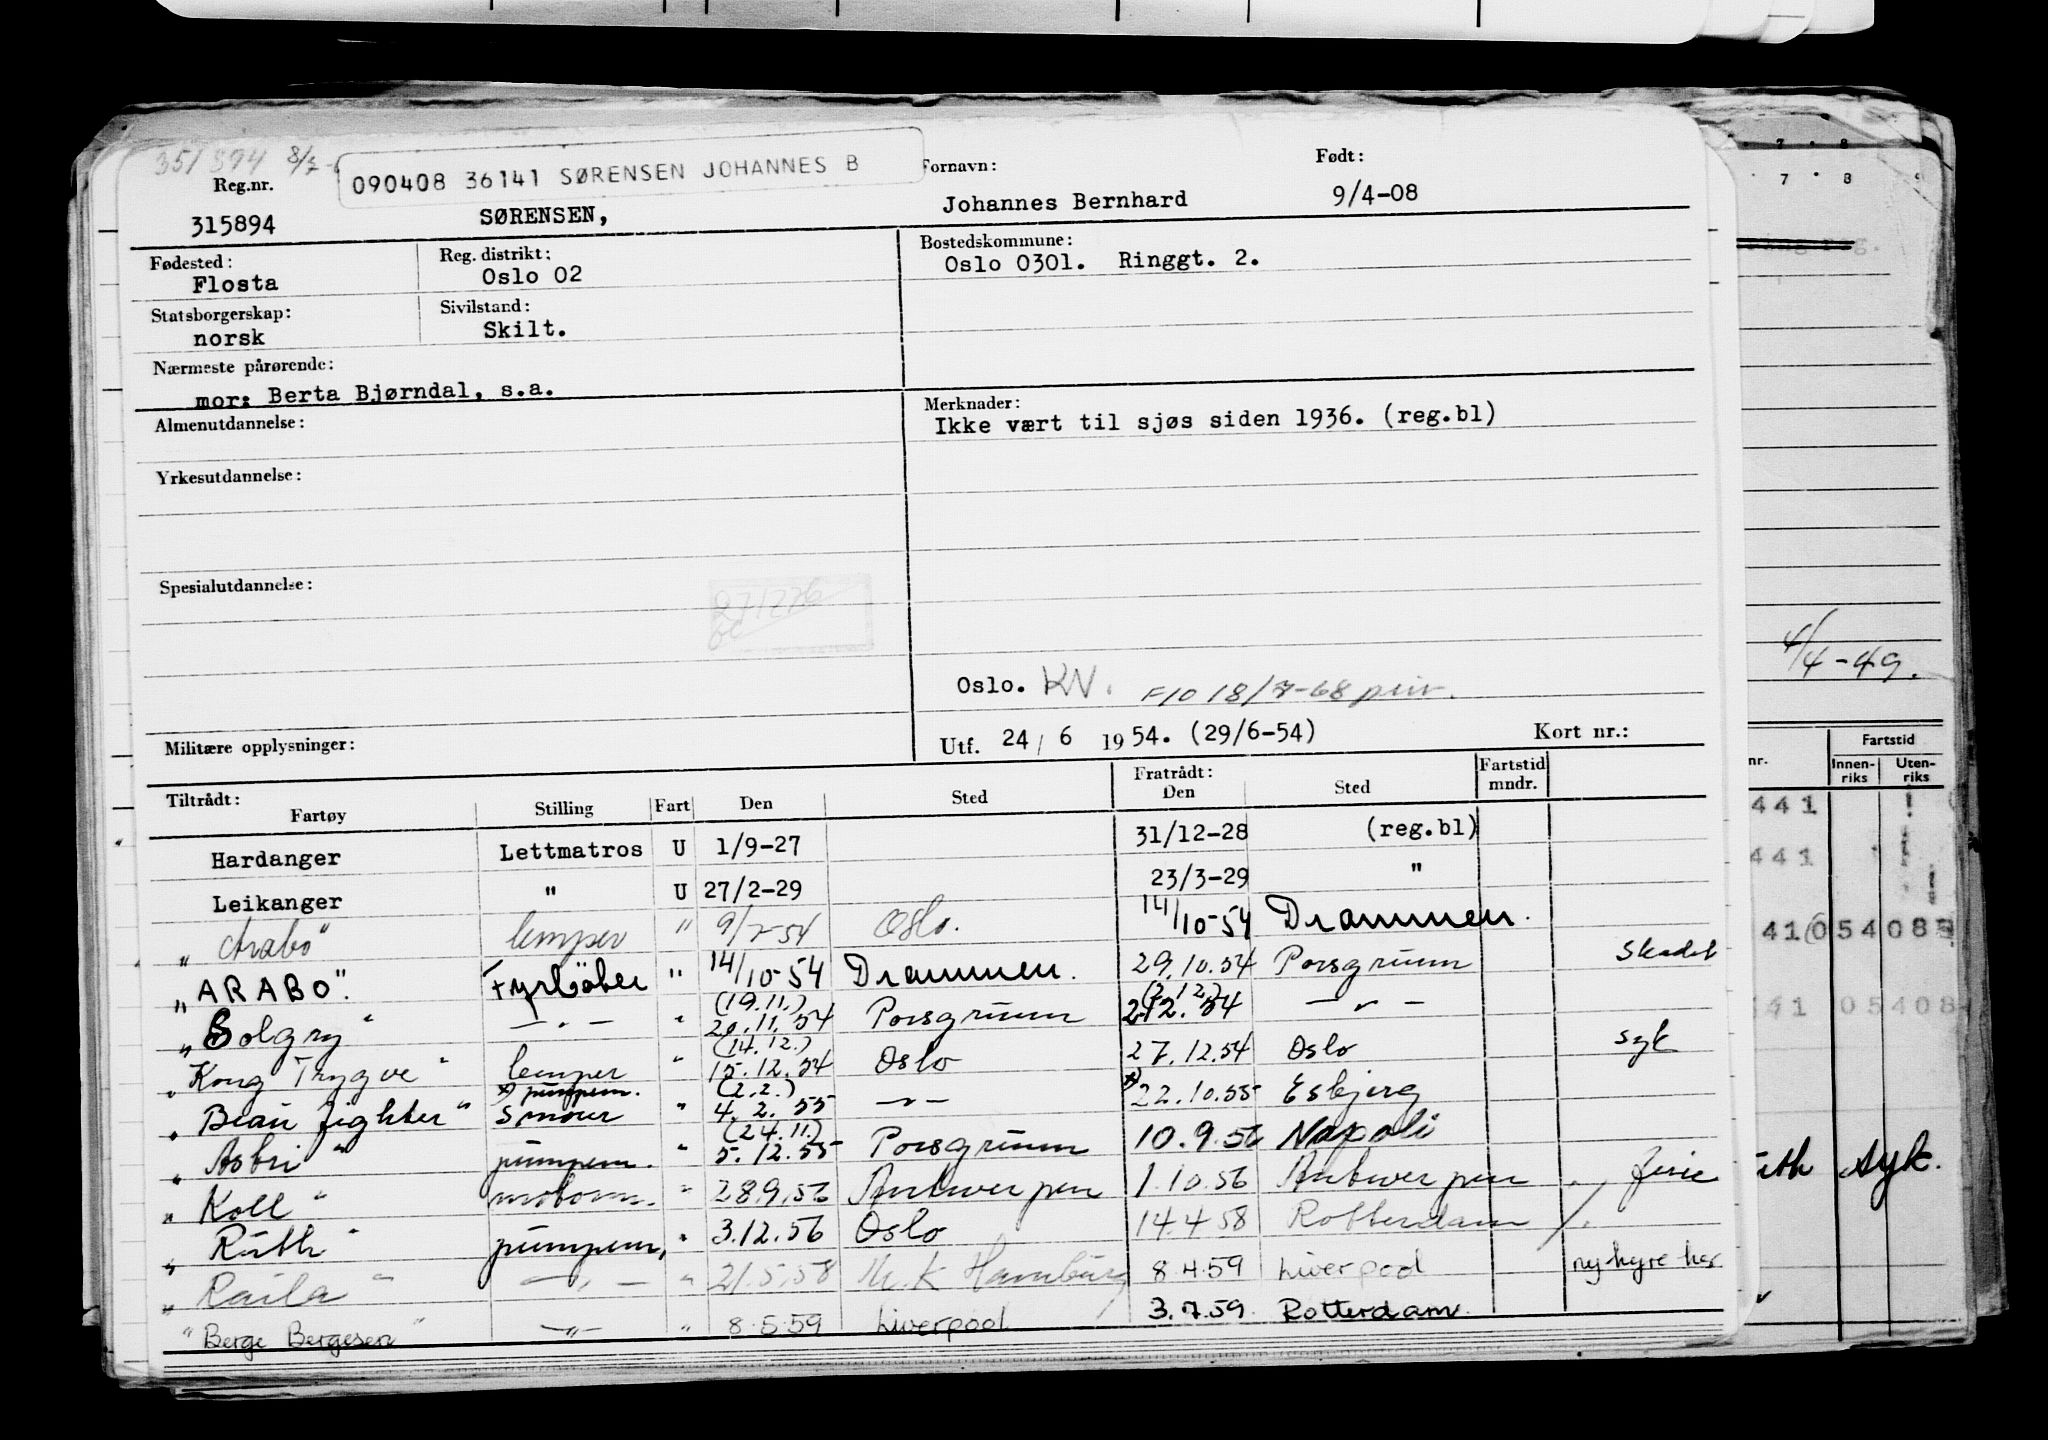 351894 8/3-
090408 36141 SØRENSEN JOHANNES B
Reg.nr. Fornavn: Født:
315894 SØRENSEN, Johannes Bernhard 9/4-08
Fødested: Reg. distrikt: Bostedskommune:
Flosta Oslo 02 Oslo 0301. Ringgt. 2.
Statsborgerskap: Sivilstand:
norsk Skilt.
Nærmeste pårørende:
mor: Berta Bjørndal, s.a.
Almenutdannelse: Merknader:
Ikke vært til sjøs siden 1936. (reg.bl)
Yrkesutdannelse:
Spesialutdannelse:
271276
Oslo. KN. F10 18/7-68 priv.
Militære opplysninger: Utf. 24/6 1954. (29/6-54) Kort nr.:
Tiltrådt: Fratrådt: Fartstid
Fartøy Stilling Fart Den Sted Den Sted mndr.
Hardanger Lettmatros U 1/9-27 31/12-28 (reg.bl)
Leikanger " U 27/2-29 23/3-29 "
"Arabo" lemper " 9/7-54 Oslo. 14/10-54 Drammen.
"ARABO". Fyrböter " 14/10-54 Drammen. 29.10.54 Porsgrunn Skadet
(19.11.) (2.12.)
"Solgry" —"— " 20.11.54 Porsgrunn 2.12.54 —"—
(14.12.)
"Kong Trygve" lemper " 15.12.54 Oslo 27.12.54 Oslo syk
x) pumpem. (2.2.)
"Beau fighter" smører " 4.2.55 —"— x) 22.10.55 Esbjerg
(24.11.)
"Asbri" pumpem. " 5.12.55 Porsgrunn 10.9.56 Napoli
"Koll" motorm. " 28.9.56 Antwerpen 1.10.56 Antwerpen ferie
"Ruth" pumpem. " 3.12.56 Oslo 14.4.58 Rotterdam
"Raila" —"— " 21.5.58 Hamburg 8.4.59 Liverpool ny hyre her
"Berge Bergesen" —"— " 8.5.59 Liverpool 3.7.59 Rotterdam
7 8
7 8
4/4-49.
Fartstid
nr. Innenriks Utenriks
441
441
41 054085
41 05408
Syk.